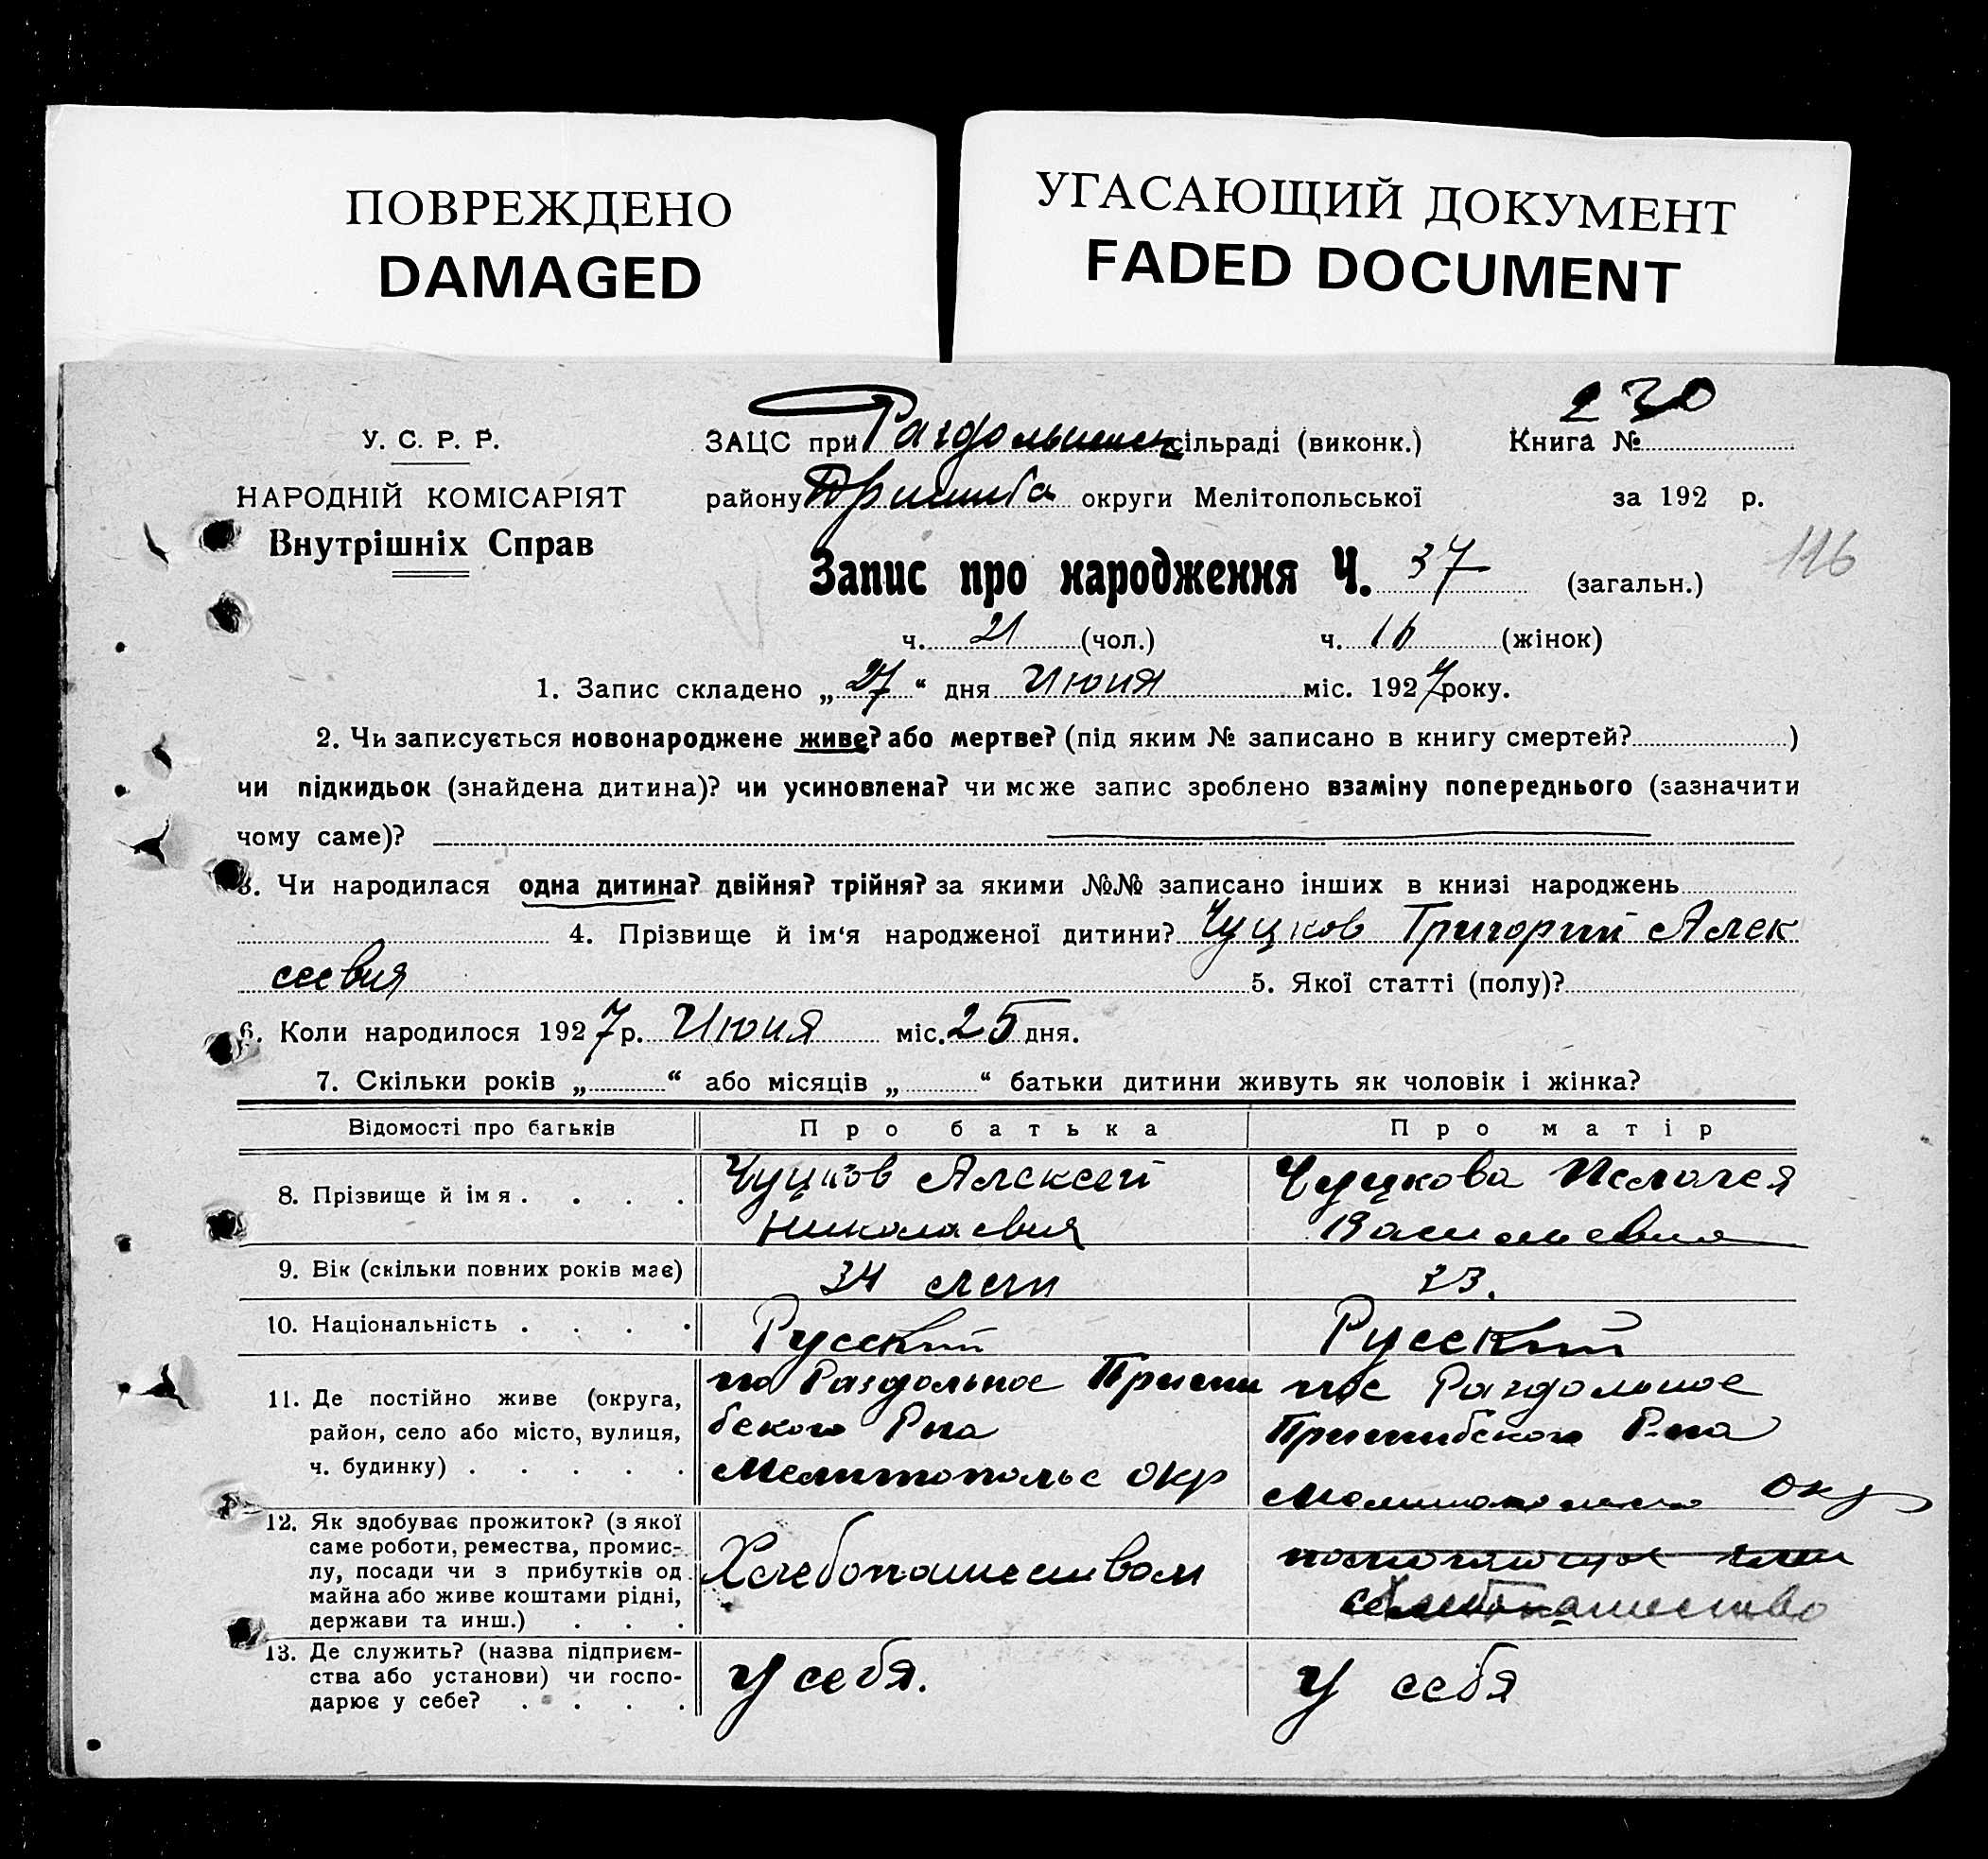 ПОВРЕЖДЕНО
DAMAGED
УГАСАЮЩИЙ ДОКУМЕНТ
FADED DOCUMENT
230
У. С. Р. Р.
ЗАЦС при Раздольненск сільраді (виконк.) Книга №
НАРОДНІЙ КОМІСАРІЯТ
району Пришиба округи Мелітопольської за 192 р.
Внутрішніх Справ
116
Запис про народження Ч. 37 (загальн.)
ч. 21 (чол.) ч. 16 (жінок)
1. Запис складено „27“ дня Июня міс. 1927 року.
2. Чи записується новонароджене живе? або мертве? (під яким № записано в книгу смертей? )
чи підкидьок (знайдена дитина)? чи усиновлена? чи може запис зроблено взаміну попереднього (зазначити
чому саме)?
3. Чи народилася одна дитина? двійня? трійня? за якими №№ записано інших в книзі народжень
4. Прізвище й ім‘я народженої дитини? Чуцков Григорий Алек
сеевич 5. Якої статті (полу)?
6. Коли народилося 1927 р. Июня міс. 25 дня.
7. Скільки років „ “ або місяців „ “ батьки дитини живуть як чоловік і жінка?
Відомості про батьків Про батька Про матір
8. Прізвище й імя . . . .
Чуцков Алексей
Николаевич
Чуцкова Пелагея
Васильевна
9. Вік (скільки повних років має) 34 лет 23.
10. Національність . . . . Русский Русский
11. Де постійно живе (округа,
район, село або місто, вулиця,
ч. будинку) . . . . .
Раздольное Приши
бского Рна
Мелитопольс окр
пос Раздольное
Пришибского Р-на
Окр
12. Як здобуває прожиток? (з якої
саме роботи, ремества, промис-
лу, посади чи з прибутків од
майна або живе коштами рідні,
держави та инш.) . . .
Хлебопашеством
13. Де служить? (назва підприєм-
ства або установи) чи госпо-
дарює у себе? . . . .
У себя.
У себя